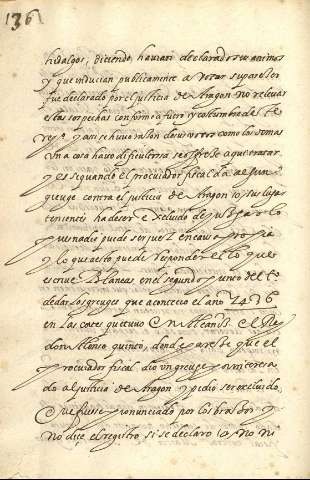 136
hidalgos, diciendo havian declarado su animo
y que inducian publicamente a votar su parecer
fue declarado por el justicia de Aragon no relevar
estas sospechas conforme a fuero y columbre de
y assi se huvo insolo de votar como los demas
Una cosa havo dificultosa se ofrece a que tratar
y es si quando el Procurador fiscal da al
greuge contra el justicia de Aragon o su lugar
teniente ha de ser excluido de juzgarlo
pues nadie puede ser juez en causa propia
y lo que a esto puede responder es lo que
escrive Blancas en el segundo punto del
de dar los greuges que acontecio el año 1436
en las cortes que tuvo en Alcañiz el Rey
don Allonso quinto, donde parece que el
procurador fiscal dio un greuge
do al justicia de Aragon y pidio ser excluido,
que fuesse pronunciado por los braços y
no dice el registro si se declaro o no ni